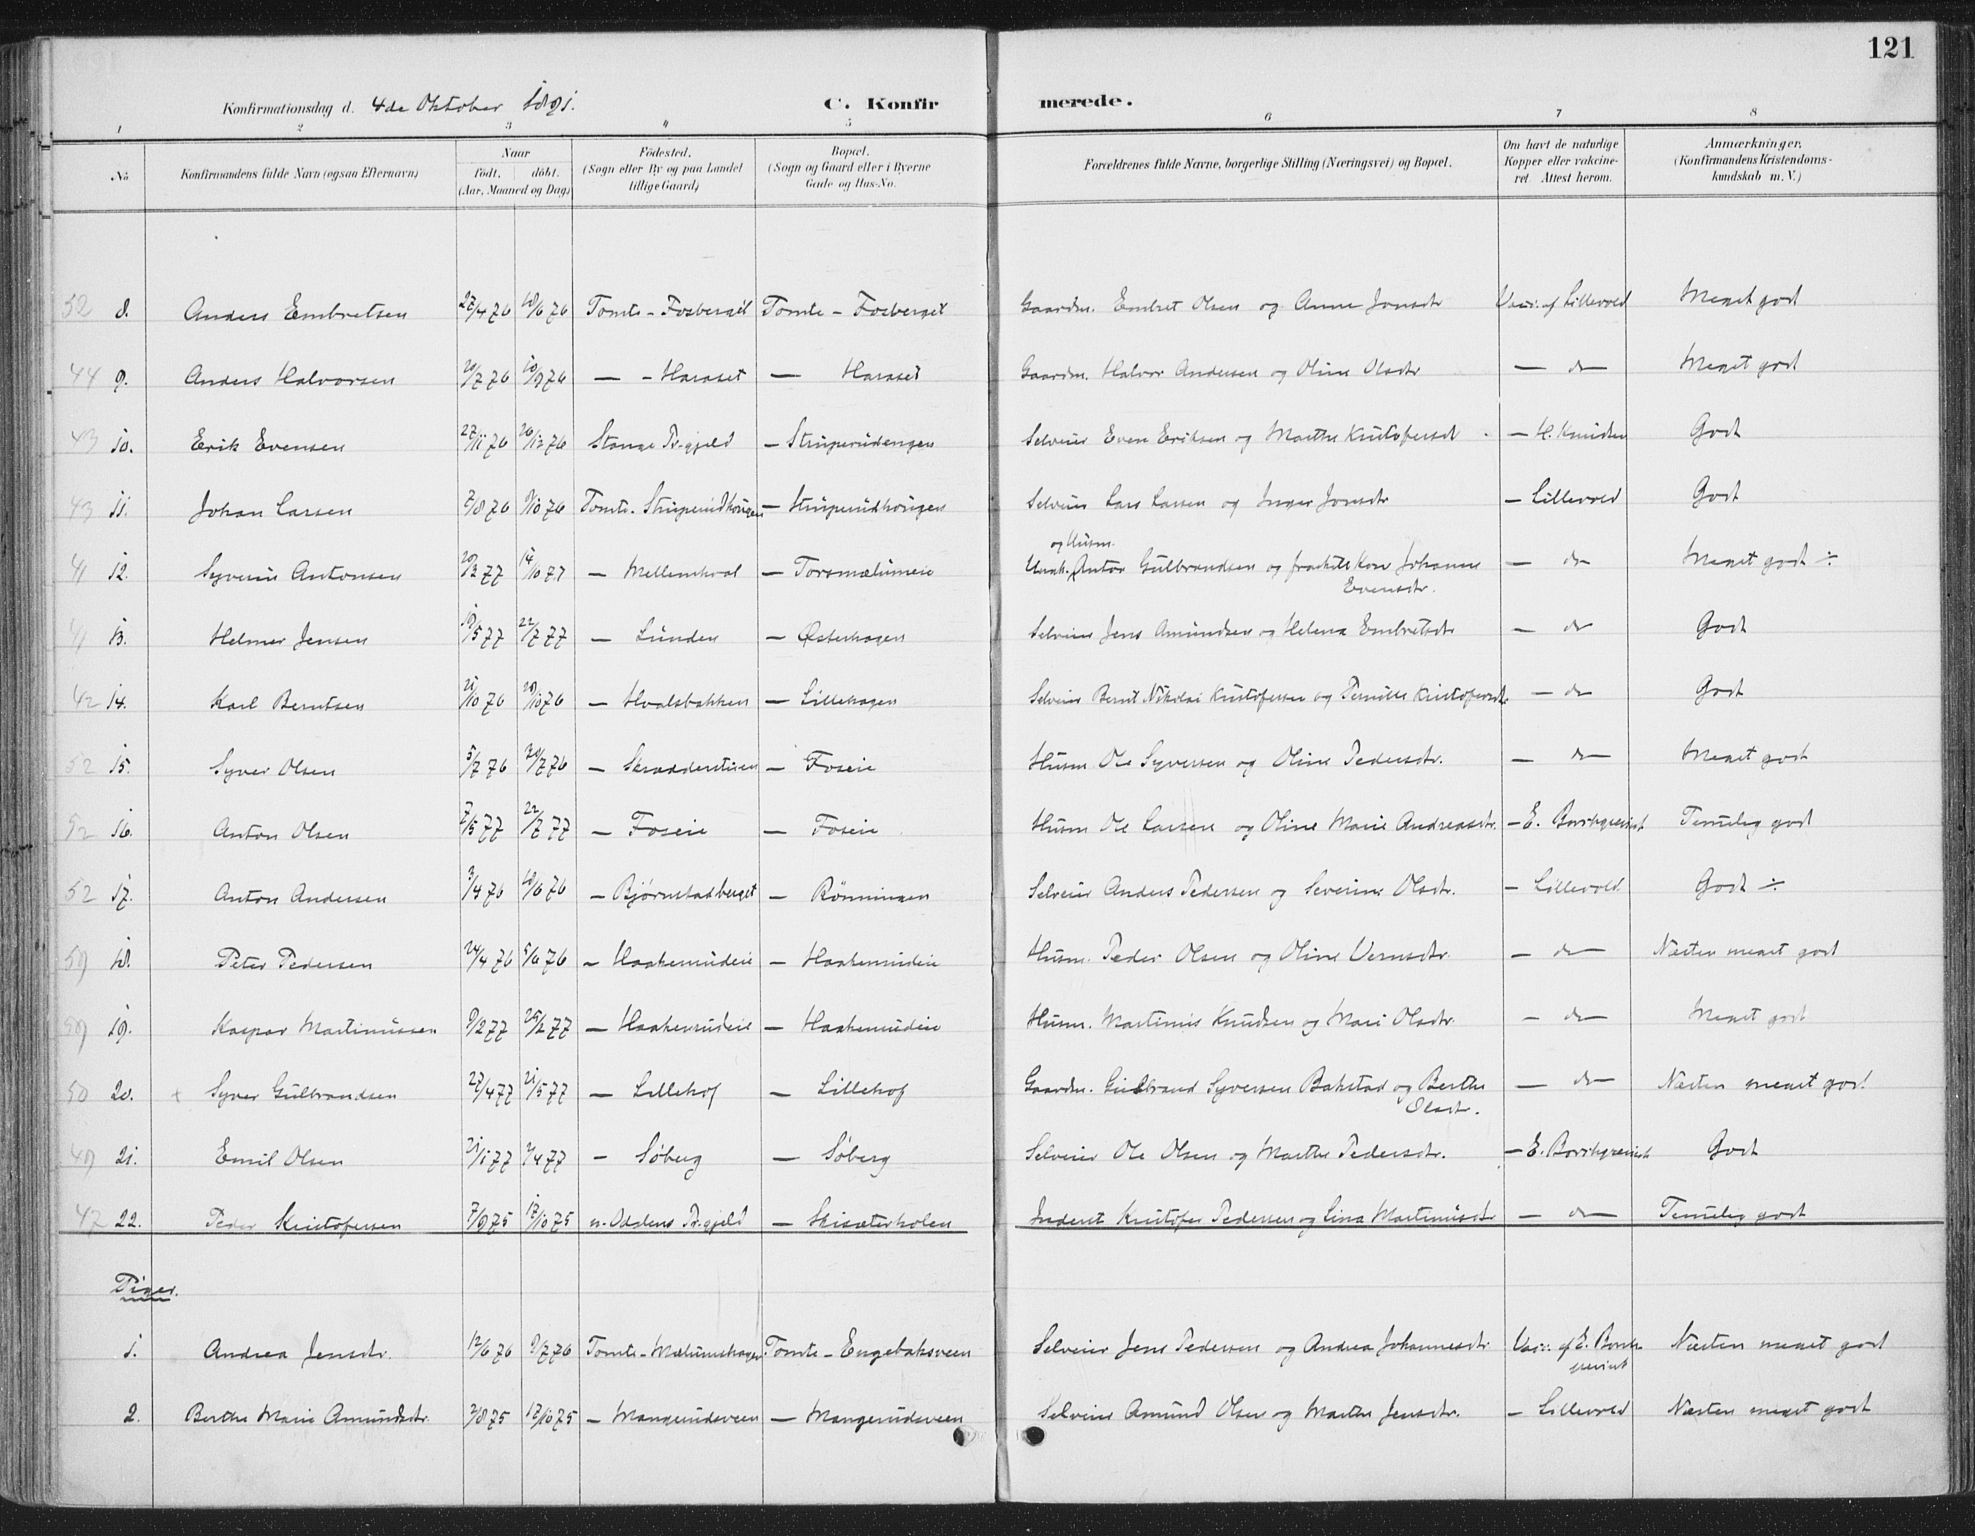 121
Konfirmationsdag d. 4de Oktober 1891. C. Konfirmerede.
1 2 3 4 5 6 7 8
No. Konfirmandens fulde Navn (ogsaa Efternavn) Naar født. døbt. (Aar, Maaned og Dag) Födested. (Sogn eller By og paa Landet tillige Gaard) Bopæl. (Sogn og Gaard eller i Byerne Gade og Hus-No. Forældrenes fulde Navne, borgerlige Stilling (Næringsvei) og Bopæl. Om havt de naturlige Kopper eller vakcineret. Attest herom. Anmærkninger, (Konfirmandens Kristendomskundskab m. V.)
52 8. Anders Embretsen 27/4 76 18/6 76 Tomte - Fosberget Tomte - Fosberget Gaardm. Embret Olsen og Anne Jonsdtr Vacc. af Lillevold Meget godt
44 9. Anders Halvorsen 20/7 76 10/9 76 — - Haraset — Haraset Gaardm. Halvor Andersen og Oline Olsdtr — do — Meget godt
43 10. Erik Evensen 27/11 76 26/12 76 Stange Pr.gjeld — Struperudengen Selveier Even Eriksen og Marthe Kristofersdt — H. Knudsen Godt
43 11. Johan Larsen 7/8 76 8/10 76 Tomte. Struperudhøugen — Struperudhøugen Selveier Lars Larsen og Inger Jonsdtr — Lillevold Godt
41 12. Syverin Antonsen 20/2 77 14/10 77 — Mellemhval — Torsmælumeie Ungk. og Husm. Anton Gulbrandsen og fraskilt Kone Johanne — do — Meget godt ÷
Evensdtr.
41 13. Helmer Jensen 19/5 77 22/7 77 — Lunden — Østerhagen Selveier Jens Amundsen og Helena Embretsdtr — do Godt
42 14. Karl Berntsen 21/10 76 29/10 76 — Hvalsbakken — Lillehagen Selveier Bernt Nikolai Kristofersen og Pernille Kristofersdtr — do — Godt
52 15. Syver Olsen 5/7 76 30/7 76 — Skrædderstuen — Foseie Husm Ole Syversen og Oline Pedersdtr. — do — Meget godt
52 16. Anton Olsen 7/5 77 22/7 77 — Foseie — Foseie Husm Ole Larsen og Oline Marie Andreasdtr. — E. Borchgrevink Temelig godt
52 17. Anton Andersen 3/4 76 18/6 76 — Bjørnstadberget — Rönningen Selveier Anders Pedersen og Severine Olsdtr. — Lillevold. Godt ÷
59 18. Peter Pedersen 24/4 76 5/6 76 — Haakenrudeie — Haakenrudeie Husm. Peder Olsen og Oline Vernsdtr. — do — Næsten meget godt
59 19. Kaspar Martinussen 9/2 77 25/2 77 — Haakenrudeie — Haakenrudeie Husm. Martinus Knudsen og Mari Olsdtr. — do — Meget godt
50 20. x Syver Gulbrandsen 27/4 77 21/5 77 — Lillehof — Lillehof Gaardm. Gulbrand Syversen Bakstad og Berthe — do — Næsten meget godt
Olsdtr.
49 21. Emil Olsen 21/1 77 2/4 77 — Søberg — Søberg Selveier Ole Olsen og Marthe Pedersdtr. — E. Borchgrevink Godt
47 22. Peder Kristofersen 7/9 75 17/10 75 n. Oddens Pr.gjeld — Skisæterholen Inderst Kristofer Pedersen og Lina Martinusdtr — do — Temelig godt
Piger.
1. Andrea Jensdtr. 12/6 76 9/7 76 Tomte - Mælumshagen Tomte - Engebaksveen Selveier Jens Pedersen og Andrea Johannesdtr Vacc. af E. Borch- Næsten meget godt
grevink
2. Berthe Marie Amundsdtr. 2/8 75 17/10 75 — Mangerudsveen — Mangerudsveen Selveier Amund Olsen og Marthe Jensdtr. — Lillevold Næsten meget godt